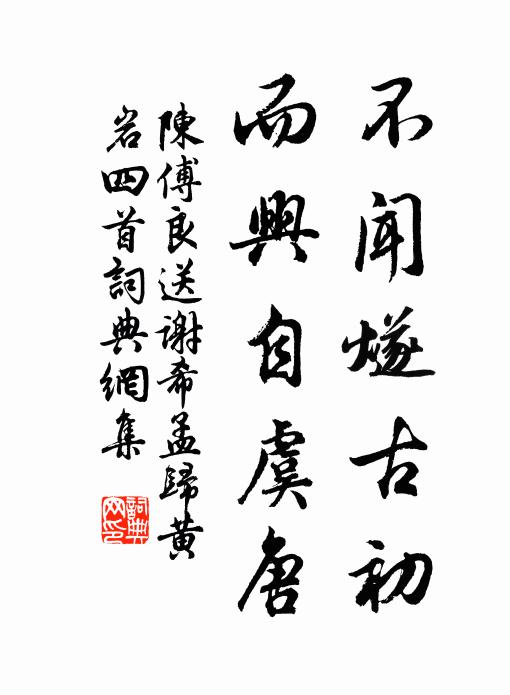 不聞燧古初
而興自虞唐
陳傅良送謝希孟歸黃
岩四首詞典網集
詞典
网印